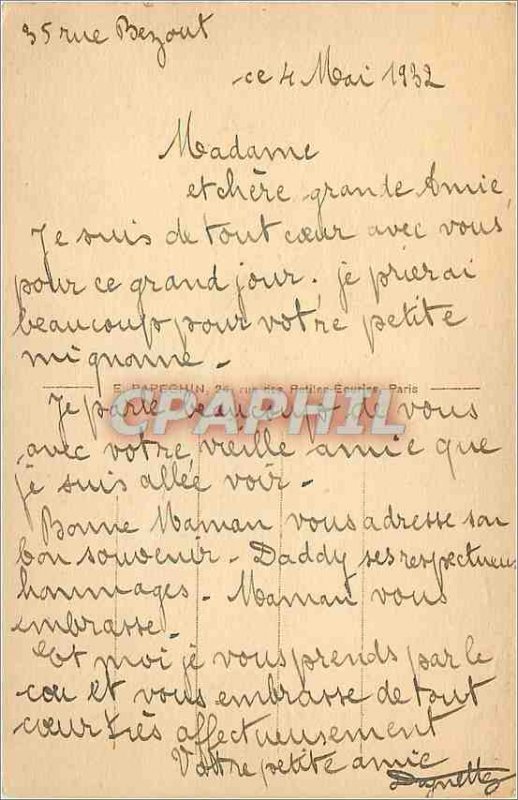 35 rue Bezout
ce 4 Mai 1932
Madame
et chère grande Amie,
Je suis de tout cœur avec vous
pour ce grand jour. je prierai
beaucoup pour votre petite
mignonne -
E. PAPEGHIN, 26, rue des Petites-Écuries, Paris
CPAPHIL
Je parle beaucoup de vous
avec votre vieille amie que
je suis allée voir -
Bonne Maman vous adresse son
bon souvenir - Daddy ses respectueux
hommages - Maman vous
embrasse -
et moi je vous prends par le
cou et vous embrasse de tout
cœur très affectueusement
Votre petite amie